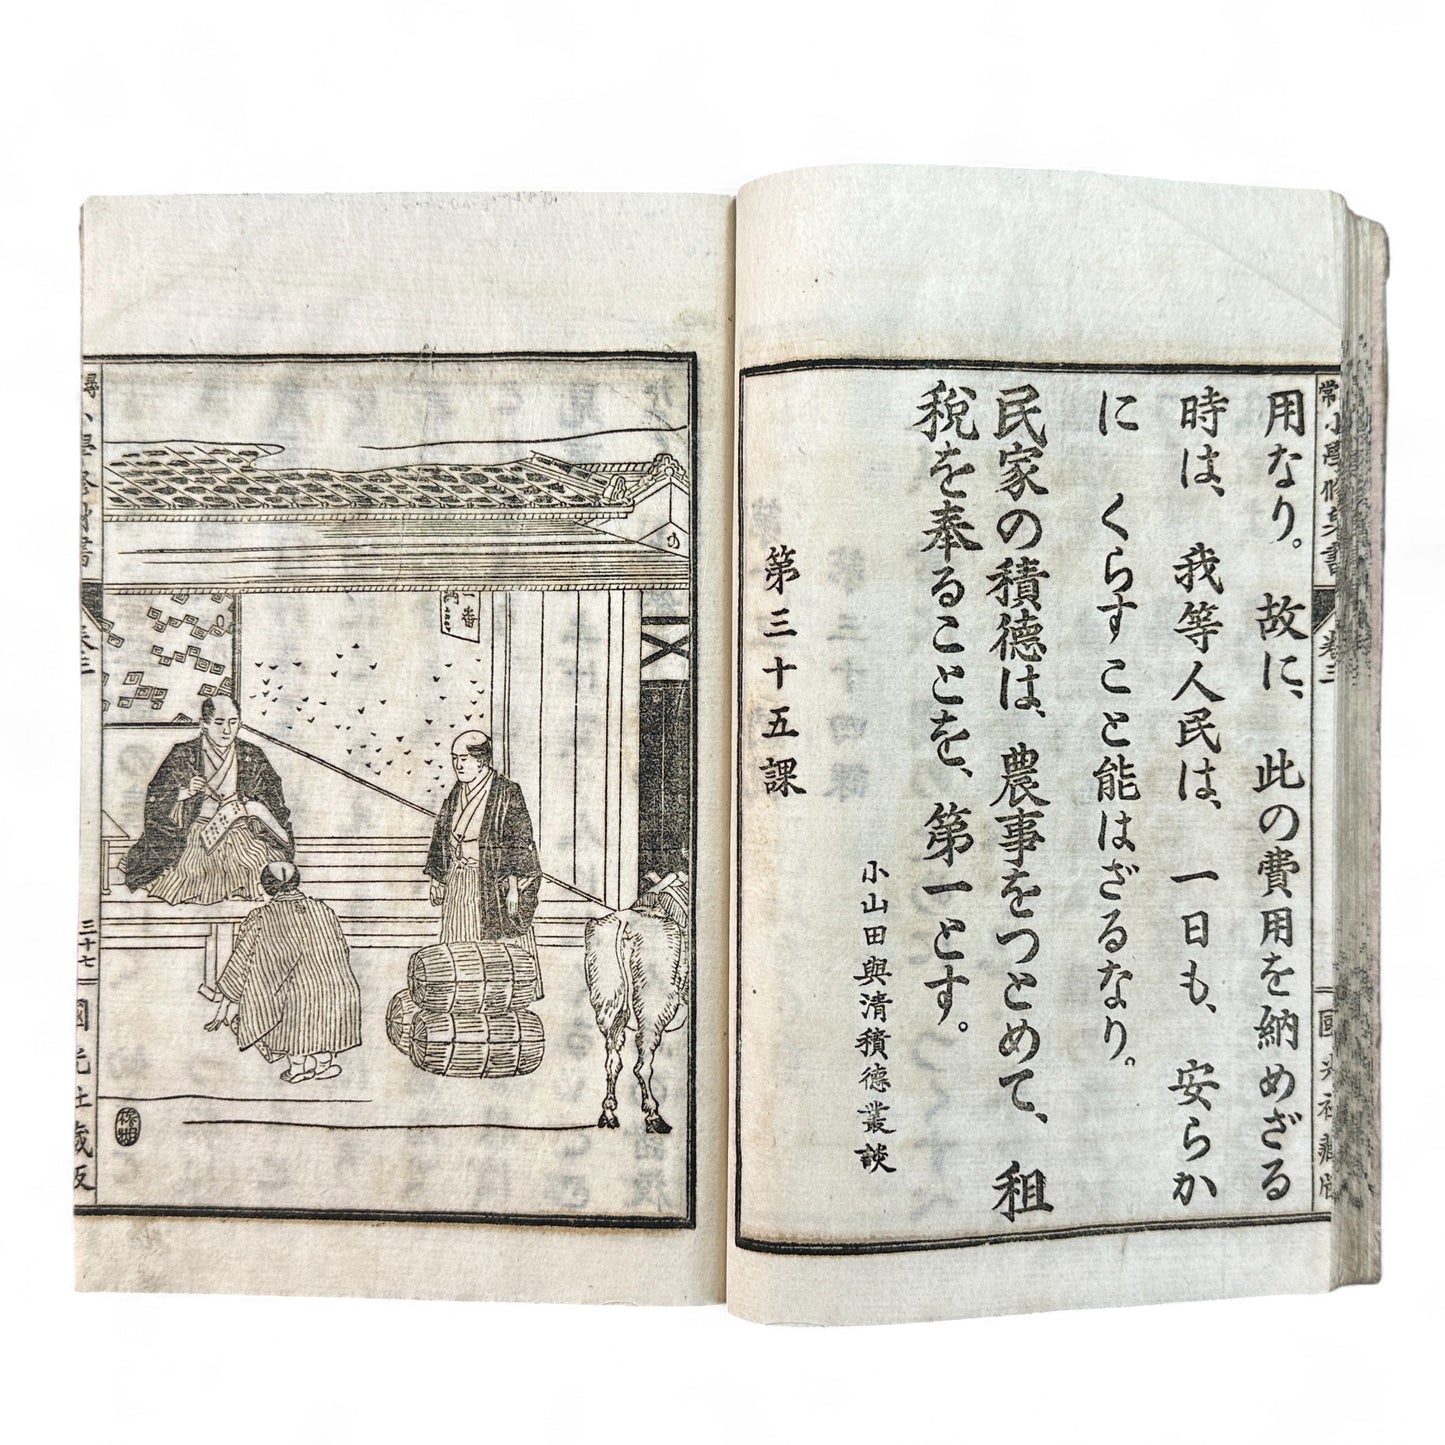 用なり。故に、此の費用を納めざる
時は、我等人民は、一日も、安らか
に くらすこと能はざるなり。
民家の積德は、農事をつとめて、租
税を奉ることを、第一とす。
小山田與清積德叢談
第三十五課
常小學修身書
卷三
國光社藏版
一番
納
尋
小學修身書
卷三
三十七
國光社藏版